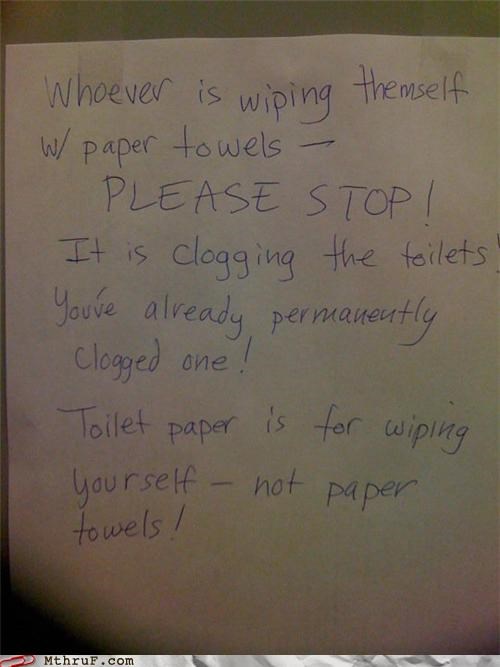 Whoever is wiping themself
w/ paper towels —
PLEASE STOP!
It is clogging the toilets!
You've already permanently
clogged one!
Toilet paper is for wiping
yourself — not paper
towels!
MThruF.com